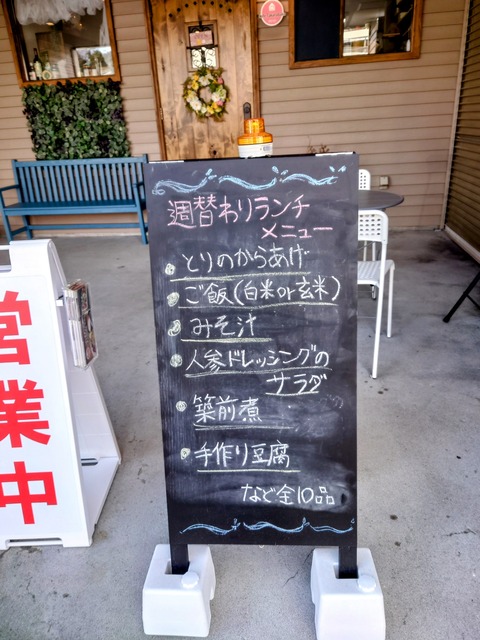 週替わりランチ
メニュー
とりのからあげ
ご飯(白米or玄米)
みそ汁
人参ドレッシングの
サラダ
築前煮
手作り豆腐
など全10品
営業中